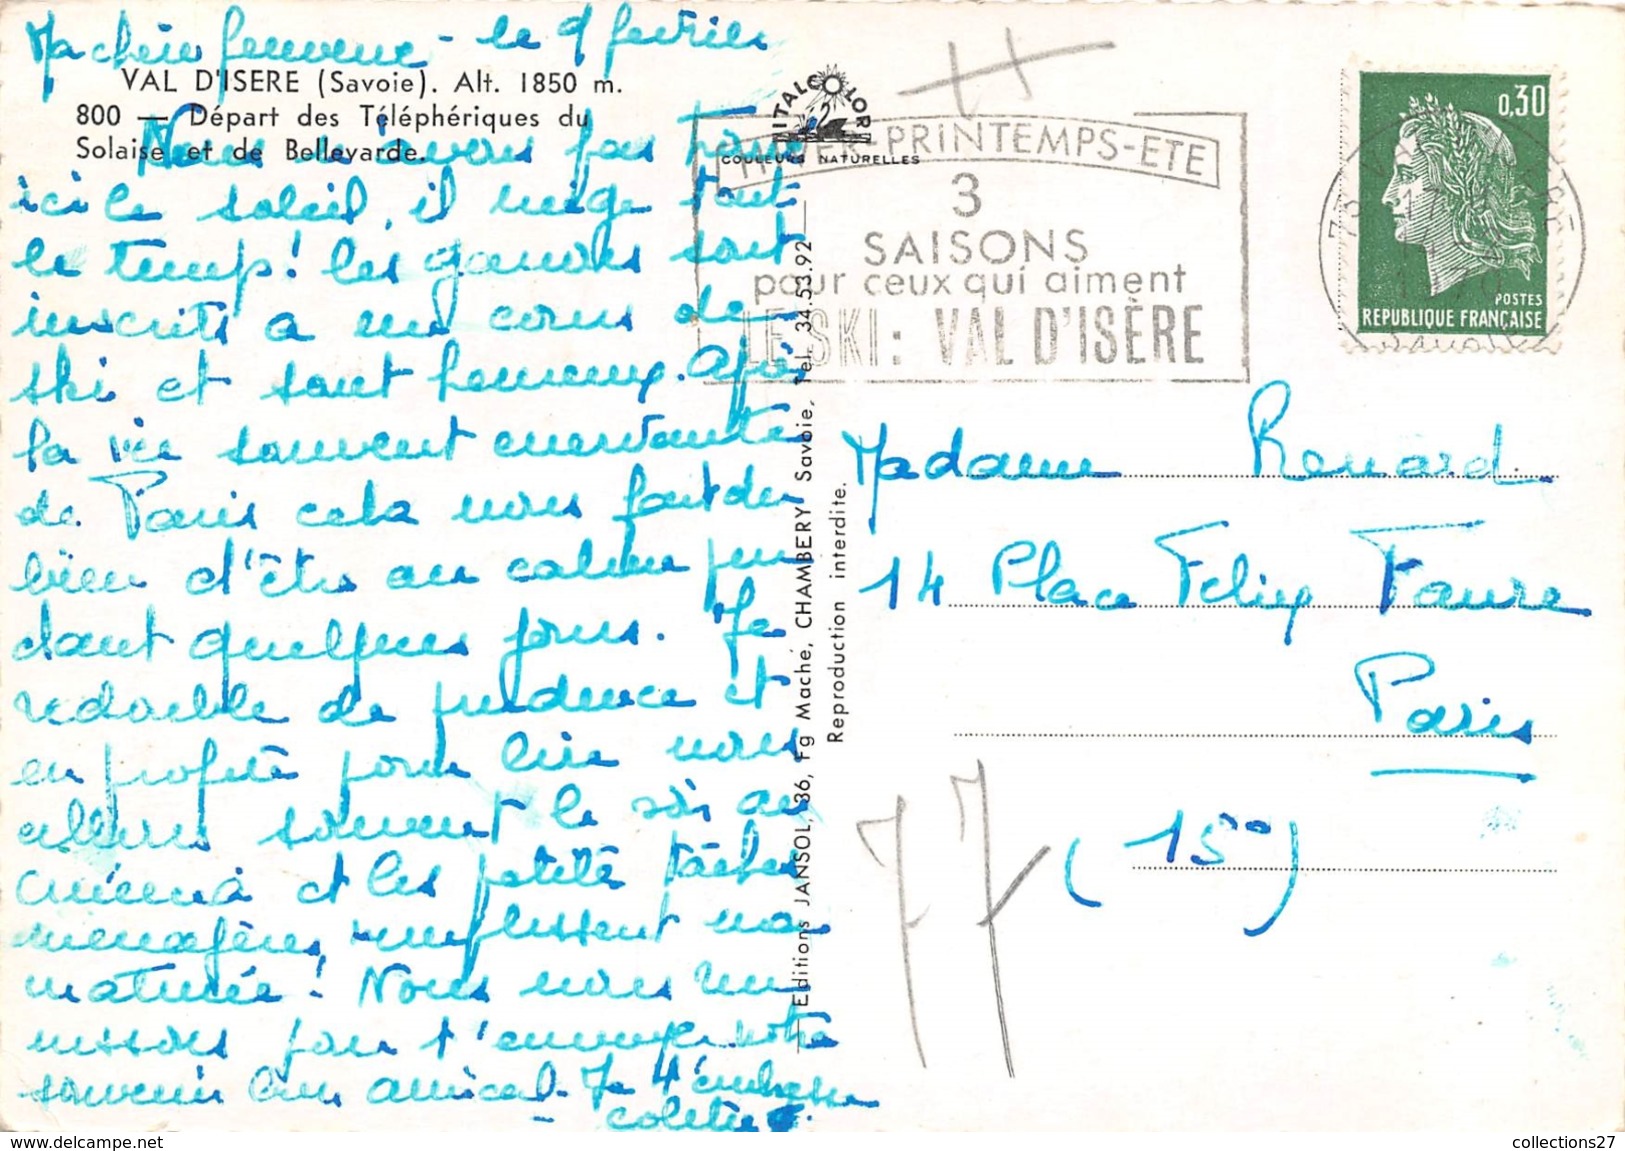 Ma chère - le 9 février
VAL D'ISERE (Savoie). Alt. 1850 m.
800 — Départ des Téléphériques du
Solaise et de Bellevarde.
Nous n'avons pas trouvé
ici le soleil, il neige tout
le temps! les garçons sont
inscrits a un cours de
ski et sont heureux. Après
la vie souvent enervante
de Paris cela nous fait du
bien d'être au calme pen
dant quelques jours. Je
redouble de prudence et
en profite pour lire nous
allons souvent le soir au
cinéma et les petites tâches
menagères remplissent ma
matinée! Nous nous reu
nissons pour t'envoyer notre
souvenir bien amical. Je t'embrasse
Colette
ITALCOLOR
COULEURS NATURELLES
Editions JANSOL, 36, Fg Maché, CHAMBERY Savoie, Tel. 34.53.92
Reproduction interdite.
HIVER-PRINTEMPS-ETE
3
SAISONS
pour ceux qui aiment
LE SKI: VAL D'ISÈRE
0,30
POSTES
REPUBLIQUE FRANÇAISE
73 VAL D'ISERE
Madame Renard
14 Place Felix Faure
Paris
(15°)
77
collections27